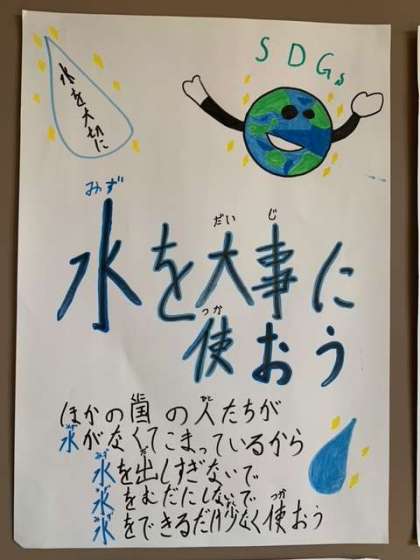 SDGs
水を大切に
みず
だいじ
水を大事に
つか
使おう
ほかの国の人たちが
水がなくてこまっているから
水を出しすぎないで
水をむだにしないで
水をできるだけ少なく使おう